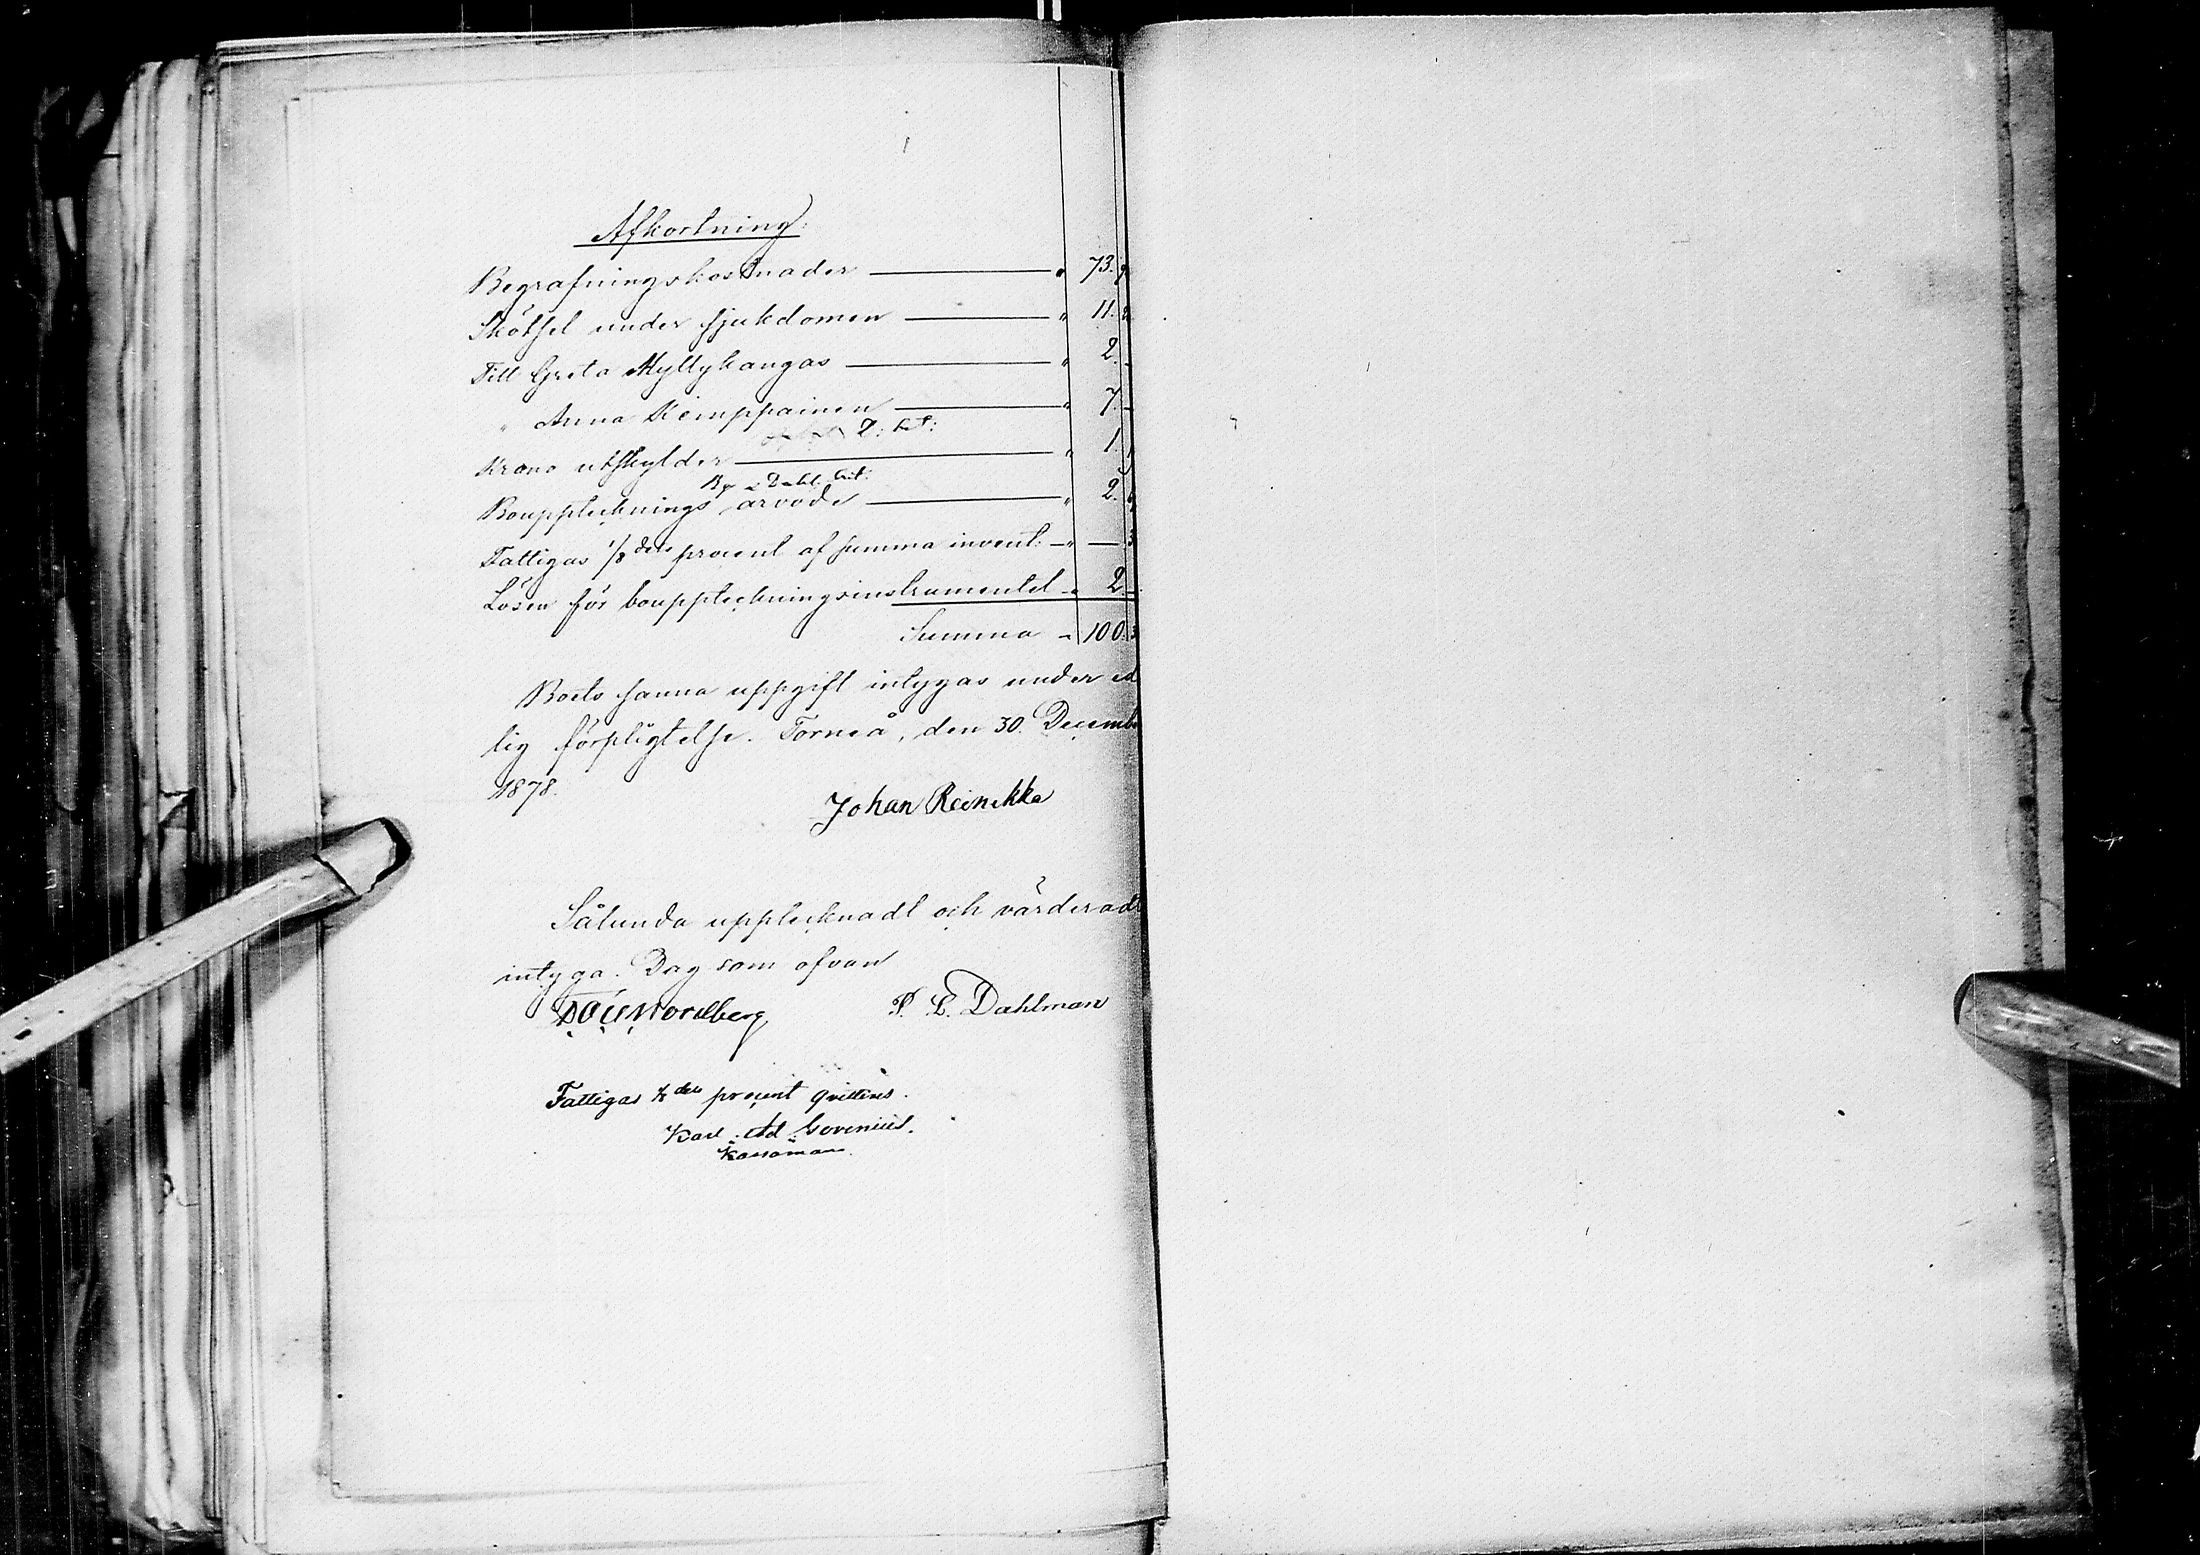 Afkortning:
Begrafningskostnader — " 73.
Skötsel under sjukdomen — " 11.
Till Greta Myllykangas — " 2. -
" Anna Kemppainen — " 7. -
2: bet:
Krono utskylder — " 1.
Bg Dahl. bet:
Bouppteknings arvode — " 2.
Fattigas 1/8 dels procent af summa invent: — " —
Lösen för bouppteckningsinstrumentet " 2. -
Summa " 100.
Boets sanna uppgift intygas under ed
lig förpligtelse. Torneå, den 30. Decembe
1878.
Johan Reinikka
Sålunda upptecknadt och värderadt
intyga. Dag som ofvan
Nordberg P. E. Dahlman
Fattigas 1/8 dels procent qvitteras.
Karl Ad Govenius.
Kassaman.